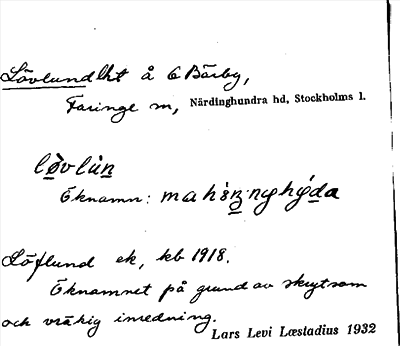 Lövlund lht å 6 Bärby,
Faringe sn, Närdinghundra hd, Stockholms l.
lòvlún
Öknamn: mahȯgnyhýda
Löflund ek, kb 1918.
Öknamnet på grund av skrytsam
och vräkig inredning.
Lars Levi Læstadius 1932